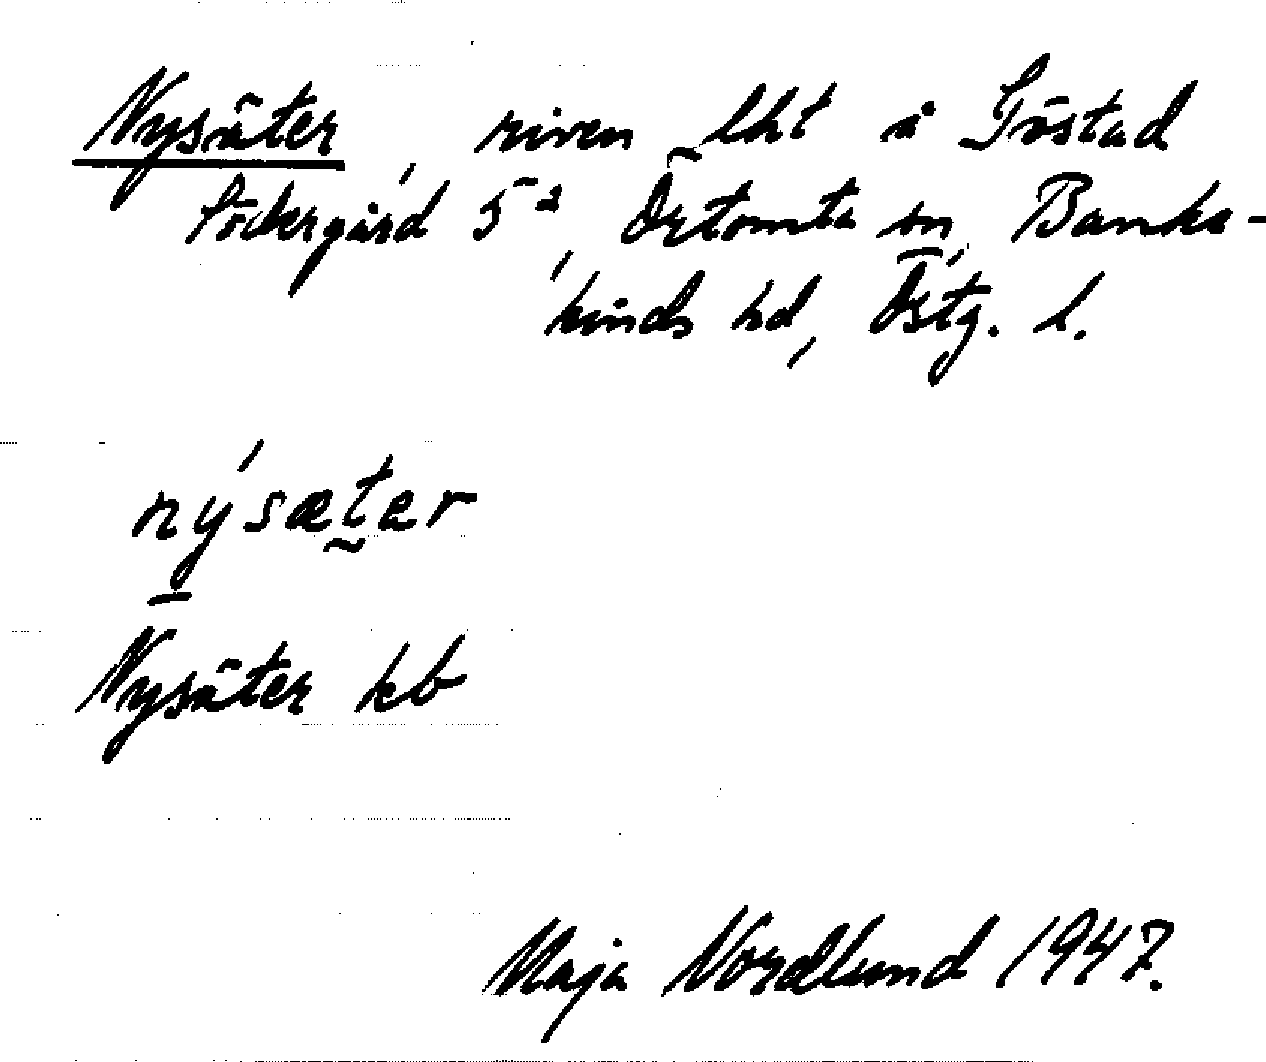 Nysäter, riven lht å Göstad
Södergård 5², Örtomta sn, Banke-
kinds hd, Östg. l.
nýsæter
Nysäter kb
Maja Nordlund 1947.